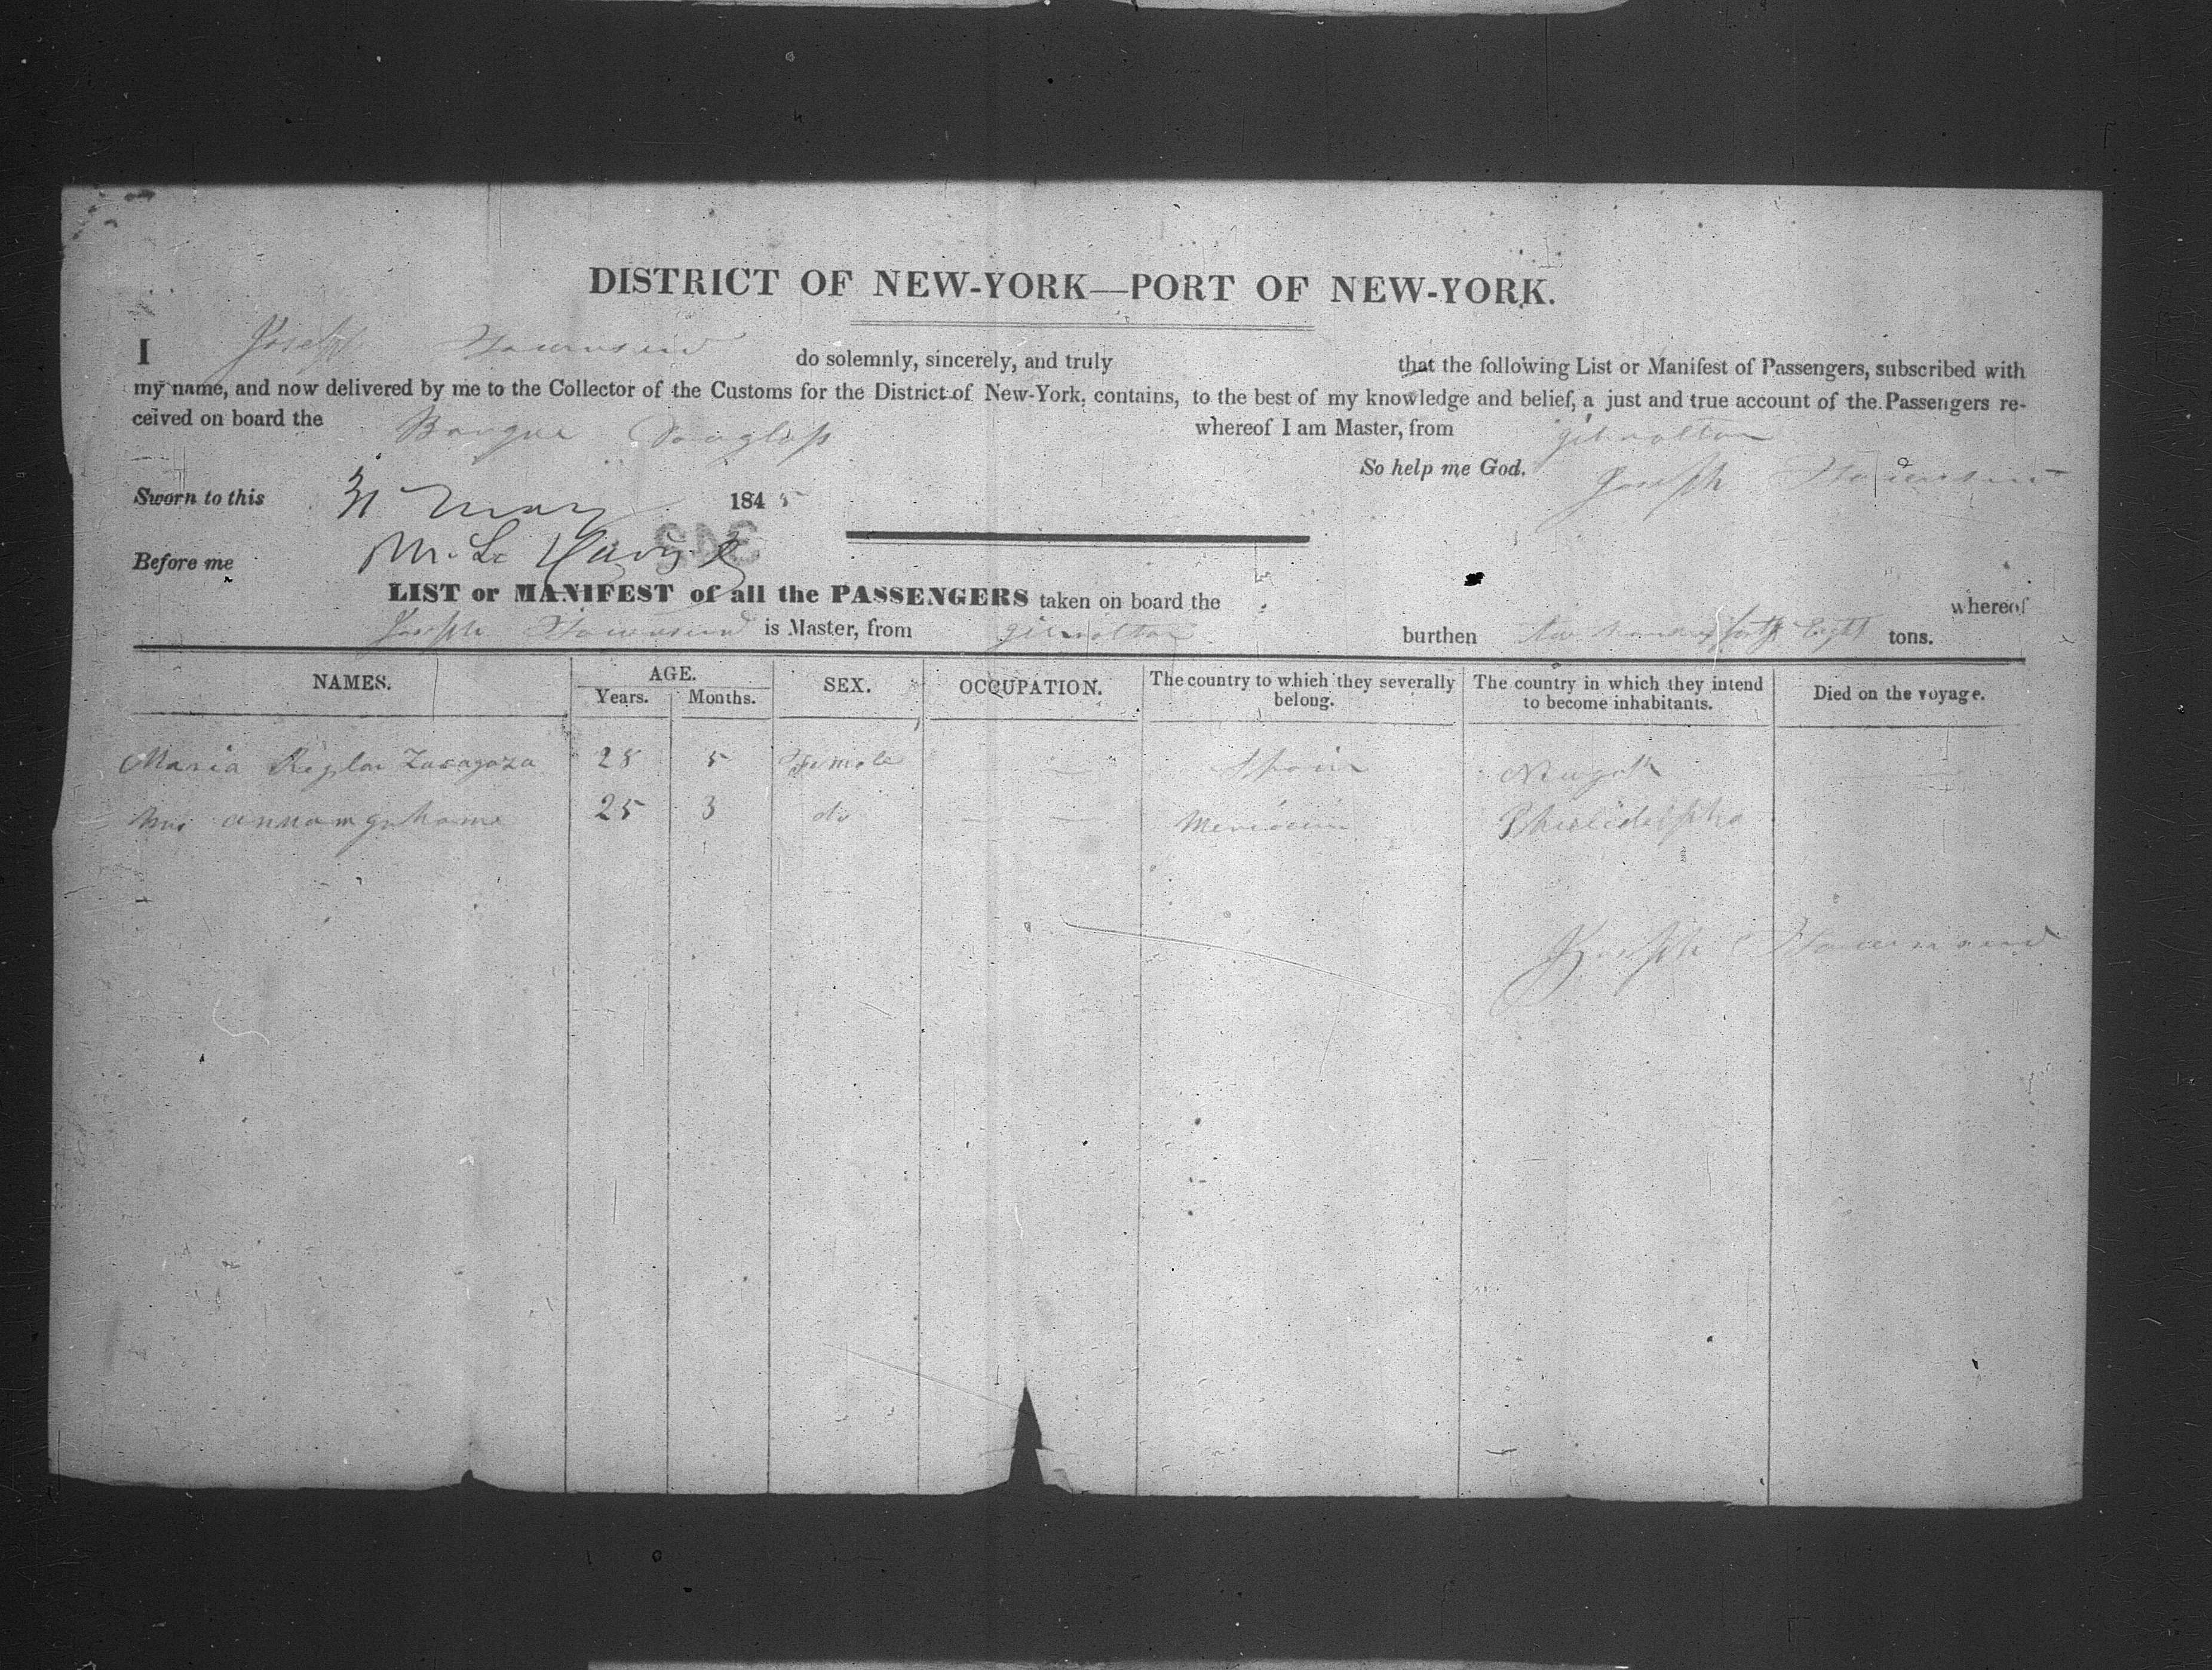 DISTRICT OF NEW-YORK—PORT OF NEW-YORK.
I Joseph Townsend do solemnly, sincerely, and truly that the following List or Manifest of Passengers, subscribed with
my name, and now delivered by me to the Collector of the Customs for the District of New-York, contains, to the best of my knowledge and belief, a just and true account of the Passengers re-
ceived on board the Barque Douglass whereof I am Master, from gibralter
So help me God. Joseph Townsend
Sworn to this 31 May 1845
Before me
LIST or MANIFEST of all the PASSENGERS taken on board the whereof
Joseph Townsend is Master, from gibralter burthen forty Eight tons.
NAMES. AGE. SEX. OCCUPATION. The country to which they severally belong. The country in which they intend to become inhabitants. Died on the voyage.
Years. Months.
Maria Zaragoza 28 5 Female — — Spain
Mrs 25 3 do — —
Joseph Townsend